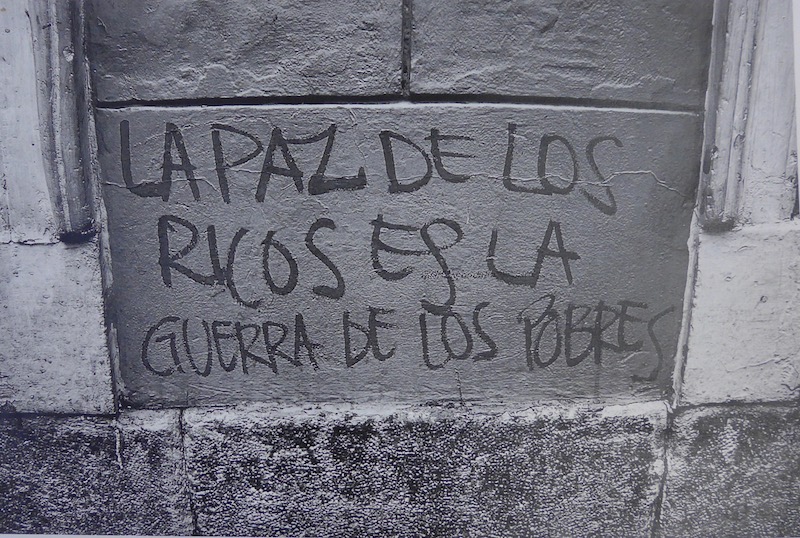 LA PAZ DE LOS
RICOS ES LA
GUERRA DE LOS POBRES